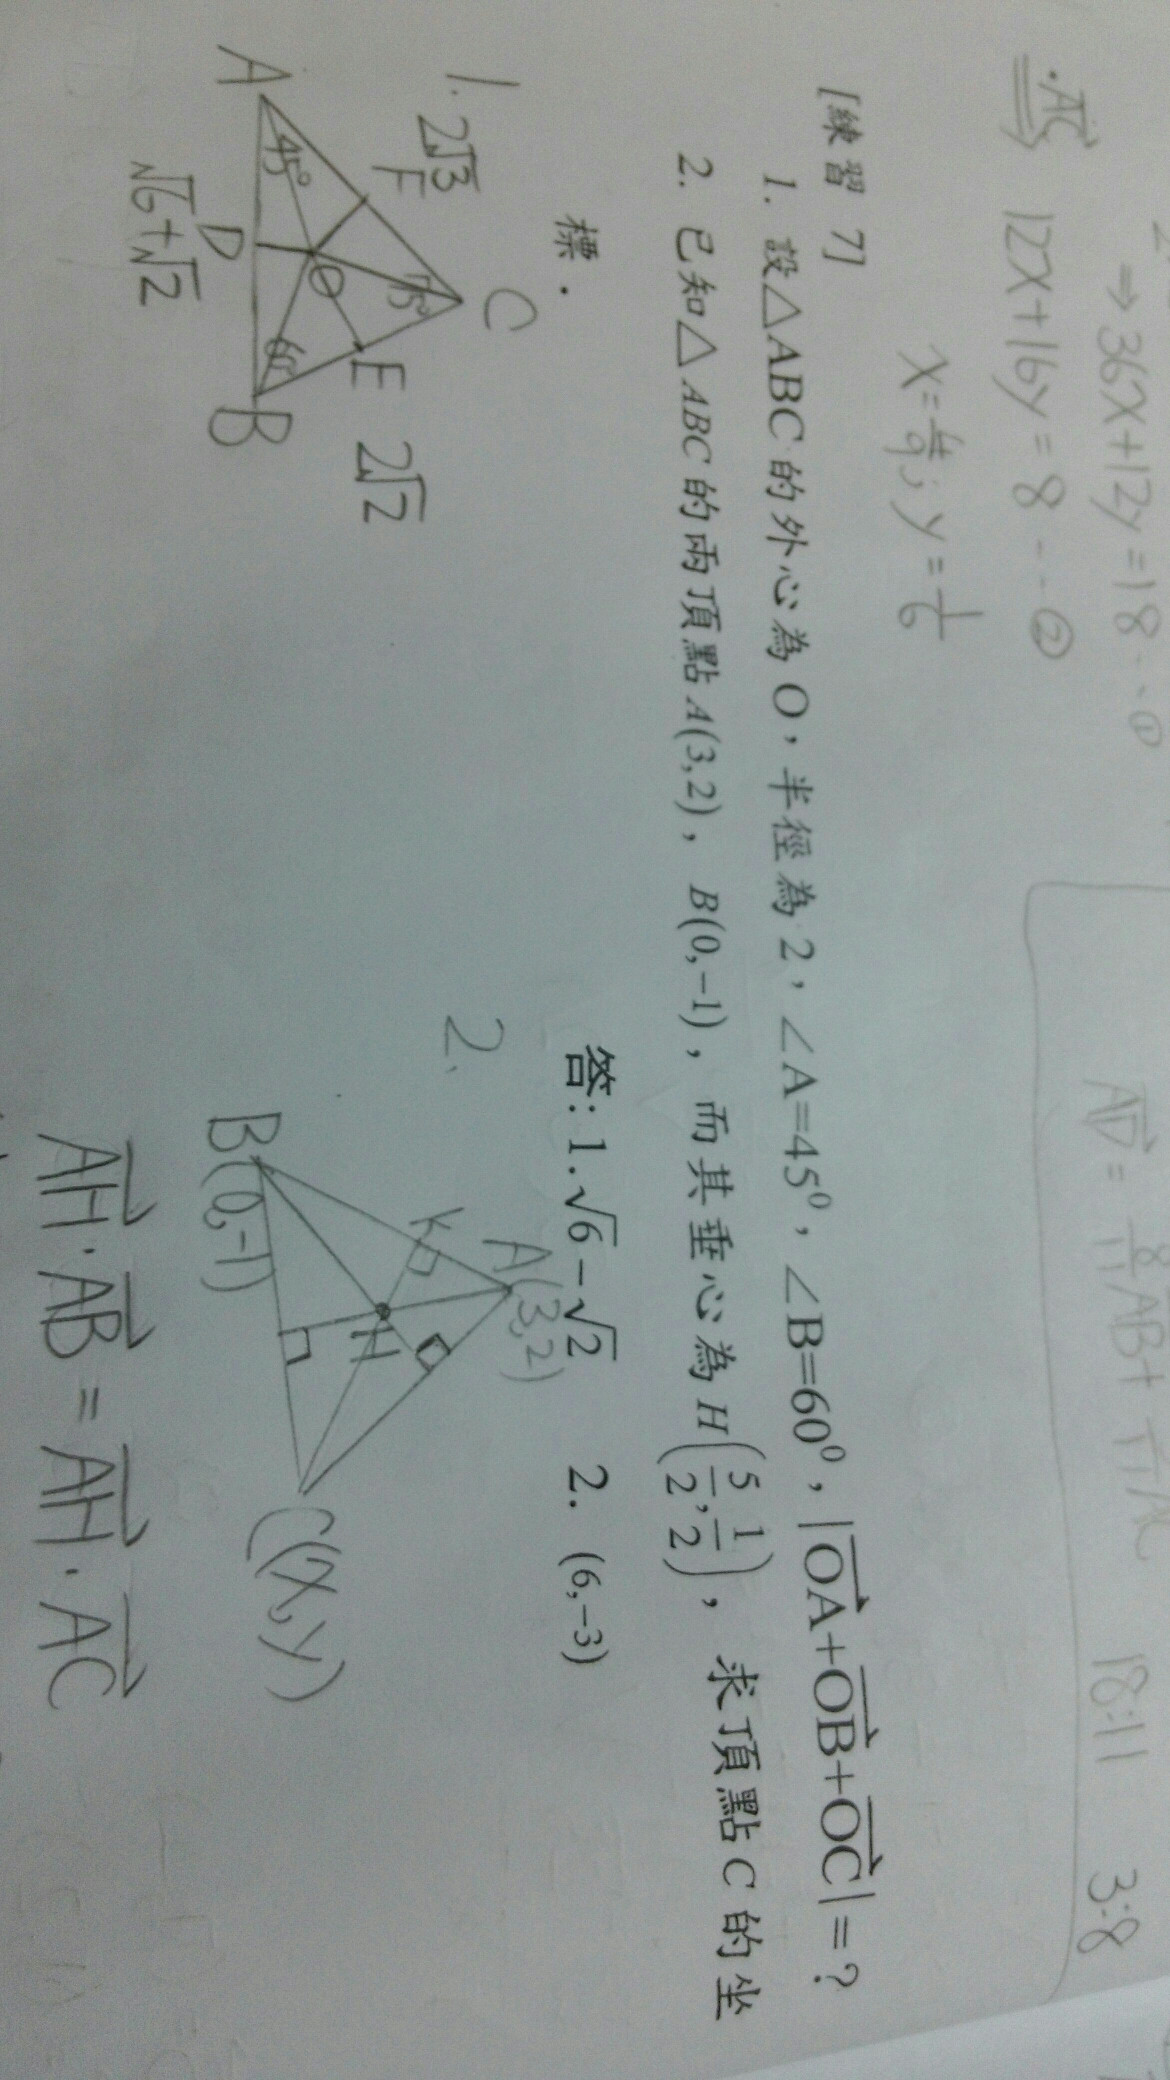 ⇒ 36x+12y=18 --①
·AC 12x+16y=8 --②
x=4/9; y=1/6
AD = 8/11 AB + 1/11 AC
18:11 3:8
[練習 7]
1. 設△ABC 的外心為 O，半徑為 2，∠A=45⁰，∠B=60⁰，|OA+OB+OC|=?
2. 已知△ABC 的兩頂點 A(3,2)，B(0,-1)，而其垂心為 H(5/2, 1/2)，求頂點 C 的坐
標．
答: 1. √6-√2 2. (6,-3)
1.
2√3
F
C
75°
E
2√2
A
45°
O
60°
B
D
√6+√2
2.
A(3,2)
K
H
B(0,-1)
C(x,y)
AH·AB = AH·AC